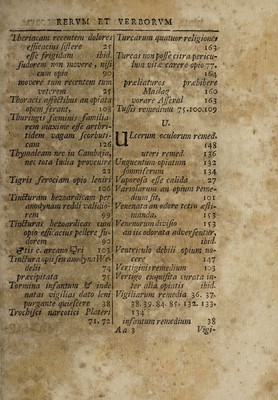 RERVM ET VERBORVM
Theriacam recentem dolores
efficacius sistere 25
esse frigidam ibid.
sudorem non movere, nisi
cum opio 90
movere tum recentem tum
veterem 25
Thoracis affectibus an opiata
opem ferant, 108
Thuringis fœminis familia-
rem maxime esse arthri-
tidem vagam scorbuti-
cam 126
Thymaleam nec in Cambaja,
nec tota India provenire
22
Tigris ferociam opio leniri
106
Tincturam bezoardicam per
anodynam reddi validio-
rem 99
Tincturas bezoardicas cum
opio efficacius pellere su-
dorem 90
is c. aremo ri 103
Tinctura opii seu anodyna We-
delii 74
præcipitata 75
Tormina infantum & inde
natas vigilias dato leni
purgante quiescere 38
Trochisci narcotici Plateri
71, 72
Turcarum quatuor religiones
163
Turcas non posse citra pericu-
lum vitæ carere opio 77.
164
præliaturos præbibere
Maslag 160
vorare Asseral 163
Tussis remedium 75.100.109
U.
ULcerum oculorum remed.
148
uteri remed. 136
Unguentum opiatum 132
somniferum 134
Vaporosa esse calida 27
Variolarum an opium reme-
dium sit, 101
Venenata an odore tetro æsti-
manda, 153
Venenorum divisio 153
datis odorata adversentur,
ibid.
Ventriculo debili opium no-
cere 147
Vertiginis remedium 103
Vertigo exquisita curata in-
ter alia opiatis ibid.
Vigiliarum remedia 36. 37.
38. 39. 84. 85. 132. 133.
134
infantum remedium 38
Aa 3 Vigi-